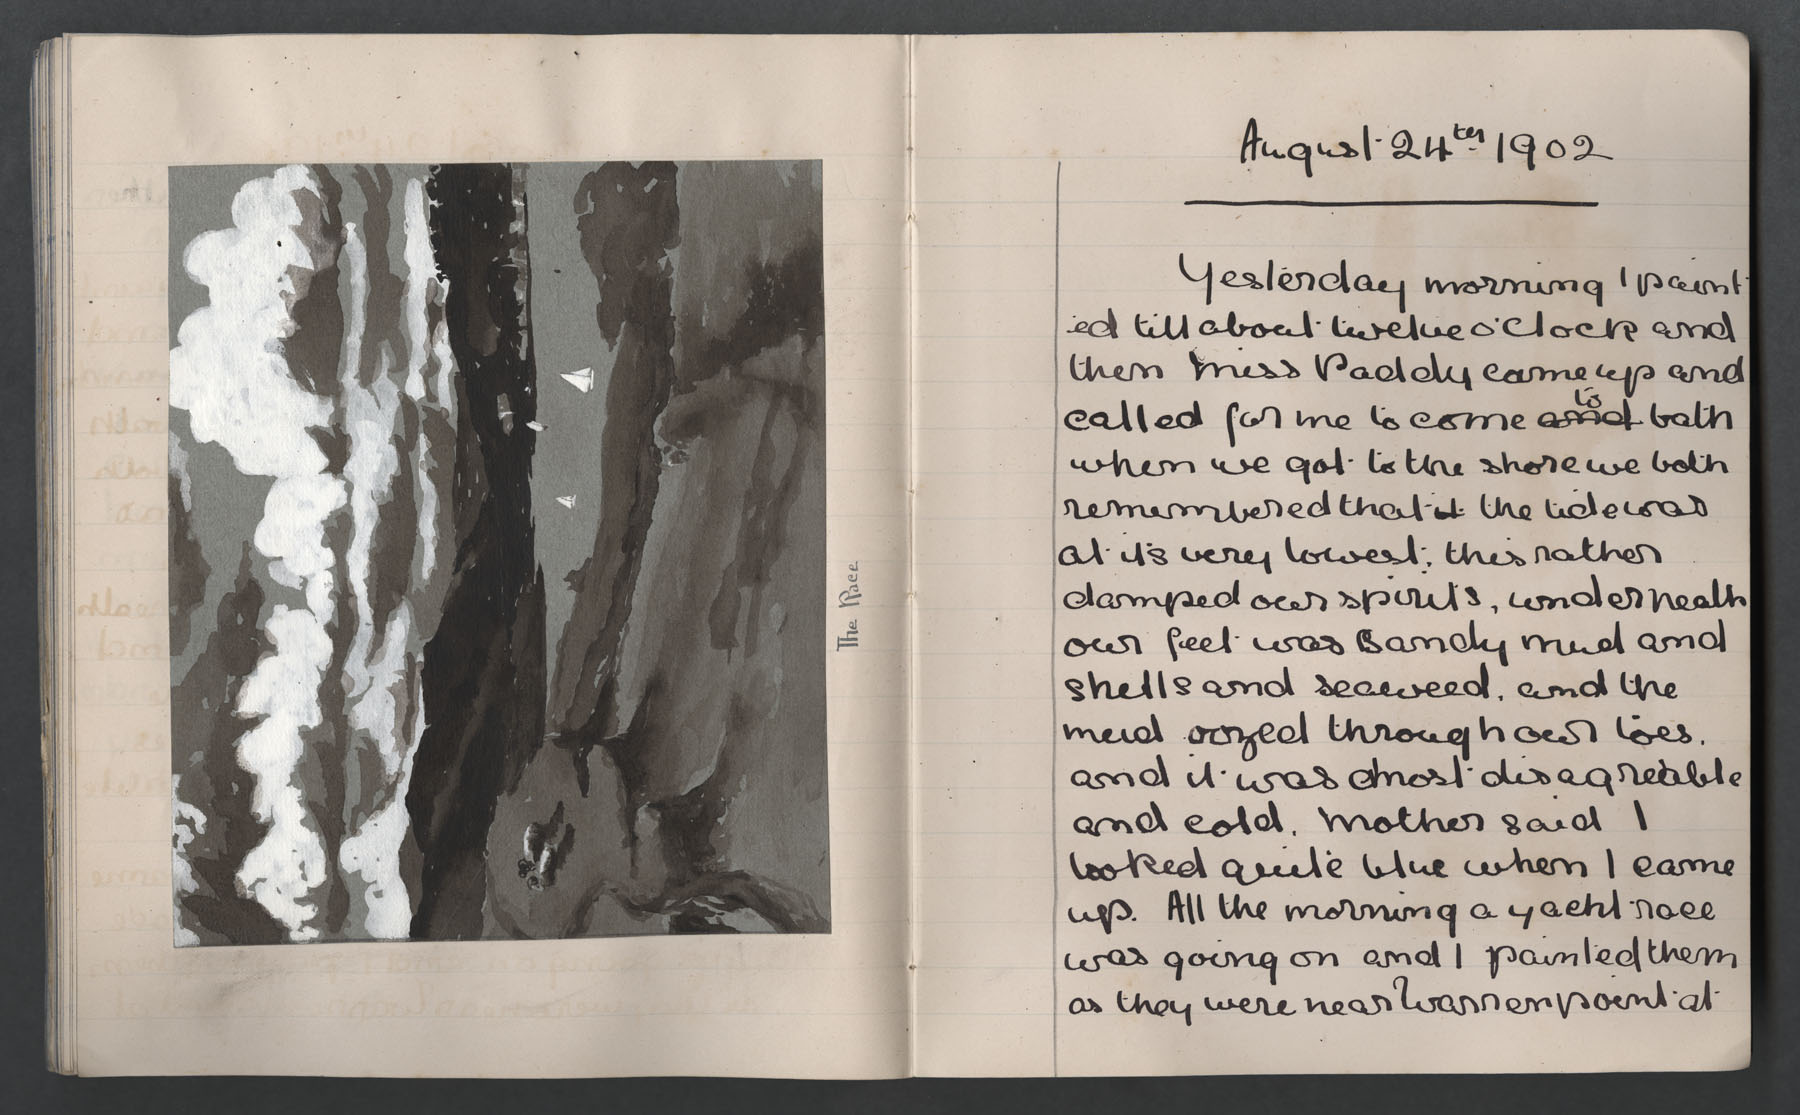 The Race
August 24th 1902
Yesterday morning I paint
ed till about twelve o'Clock and
then Miss Paddy came up and
called for me to come and to bath
when we got to the shore we both
remembered that it the tide was
at it's very lowest; this rather
damped our spirits, underneath
our feet was Sandy mud and
shells and seaweed, and the
mud oozed through our toes.
and it was most disagreable
and cold. Mother said I
looked quite blue when I came
up. All the morning a yacht race
was going on and I painted them
as they were near Warrenpoint at